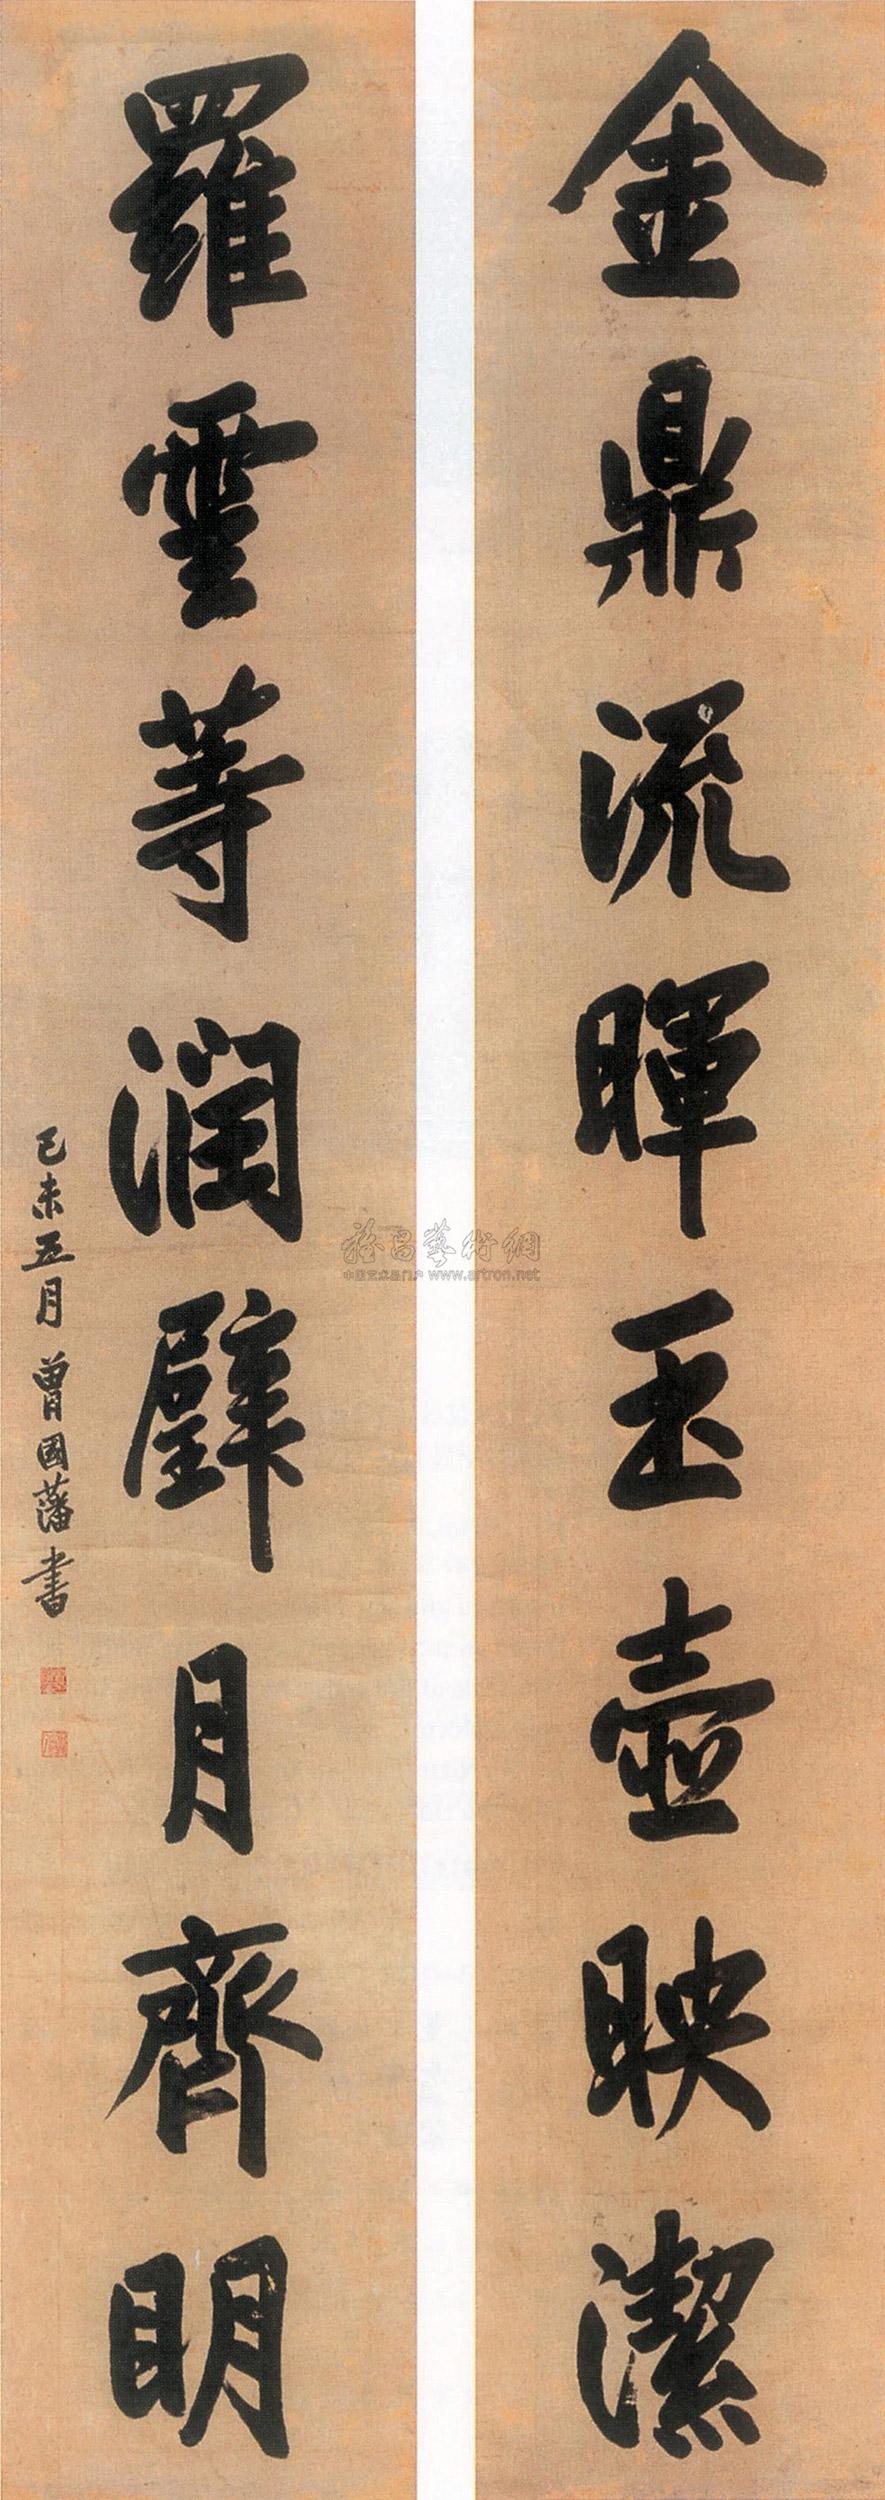 金鼎流暉玉壺映潔
羅雲等潤璧月齊明
己未五月 曾國藩書
雅昌藝術網
中国艺术品门户 www.artron.net